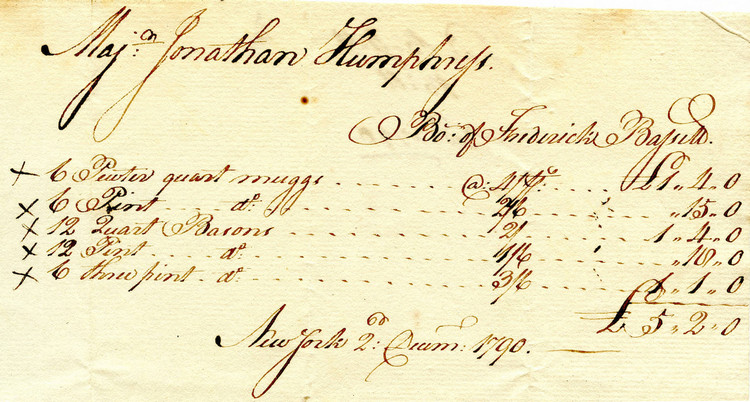 Majr. Jonathan Humphreys.
Bot. of Frederick Bassett.
x 6 Pewter quart muggs @: 4/ £1,, 4,, 0
x 6 Pint do. 2/6 ,, 15,, 0
x 12 Quart Basons 2/ 1,, 4,, 0
x 12 Pint do. 1/6 ,, 18,, 0
x 6 three pint do. 3/6 1,, 1,, 0
£ 5,, 2,, 0
New York 2d. Decemr. 1790.